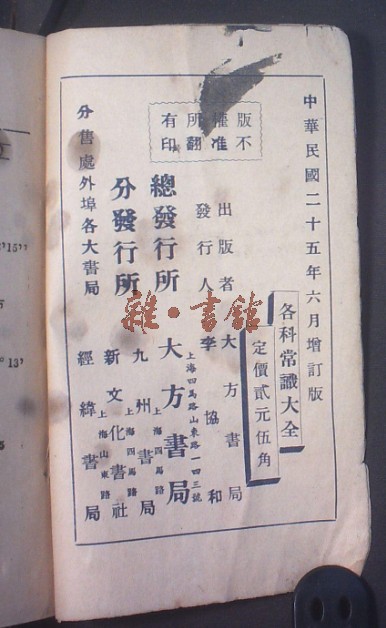 中華民國二十五年六月增訂版
各科常識大全
定價貳元伍角
版權所有
不准翻印
出版者 大方書局
發行人 李協和
總發行所 大方書局
上海四馬路山東路一四三號
分發行所
九州書局
上海四馬路
新文化書社
上海四馬路
經緯書局
上海山東路
分售處外埠各大書局
雜·書館
15''
13'